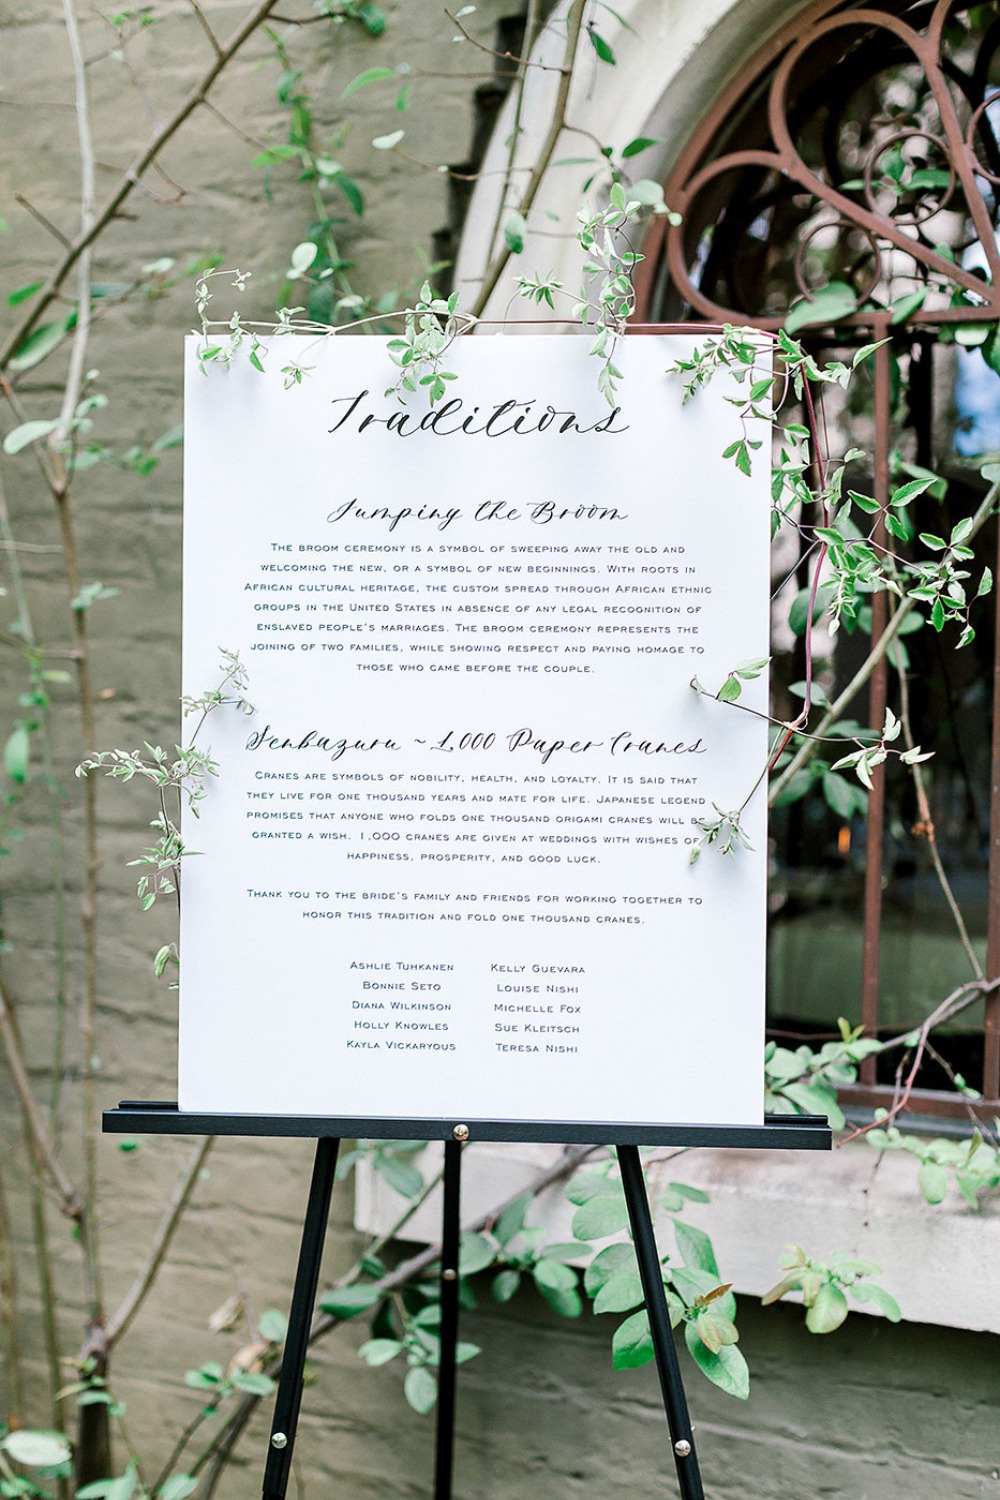 Traditions
Jumping the Broom
The broom ceremony is a symbol of sweeping away the old and
welcoming the new, or a symbol of new beginnings. With roots in
African cultural heritage, the custom spread through African ethnic
groups in the United States in absence of any legal recognition of
enslaved people's marriages. The broom ceremony represents the
joining of two families, while showing respect and paying homage to
those who came before the couple.
Senbazuru ~ 1,000 Paper Cranes
Cranes are symbols of nobility, health, and loyalty. It is said that
they live for one thousand years and mate for life. Japanese legend
promises that anyone who folds one thousand origami cranes will be
granted a wish. 1,000 cranes are given at weddings with wishes of
happiness, prosperity, and good luck.
Thank you to the bride's family and friends for working together to
honor this tradition and fold one thousand cranes.
Ashlie Tuhkanen Kelly Guevara
Bonnie Seto Louise Nishi
Diana Wilkinson Michelle Fox
Holly Knowles Sue Kleitsch
Kayla Vickaryous Teresa Nishi